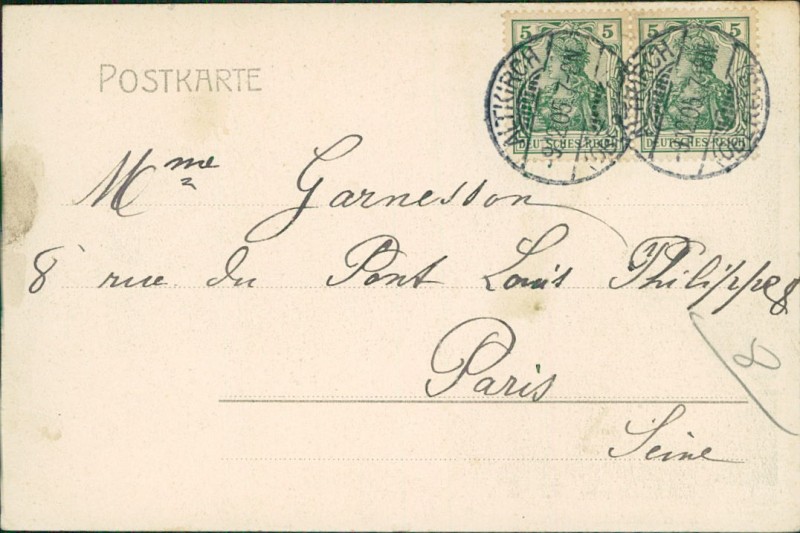 POSTKARTE
5 5 5 5
DEUTSCHES REICH DEUTSCHES REICH
ALTKIRCH ALTKIRCH
Mme Garnesson
8 rue du Pont Louis Philippe 8
Paris
8
Seine